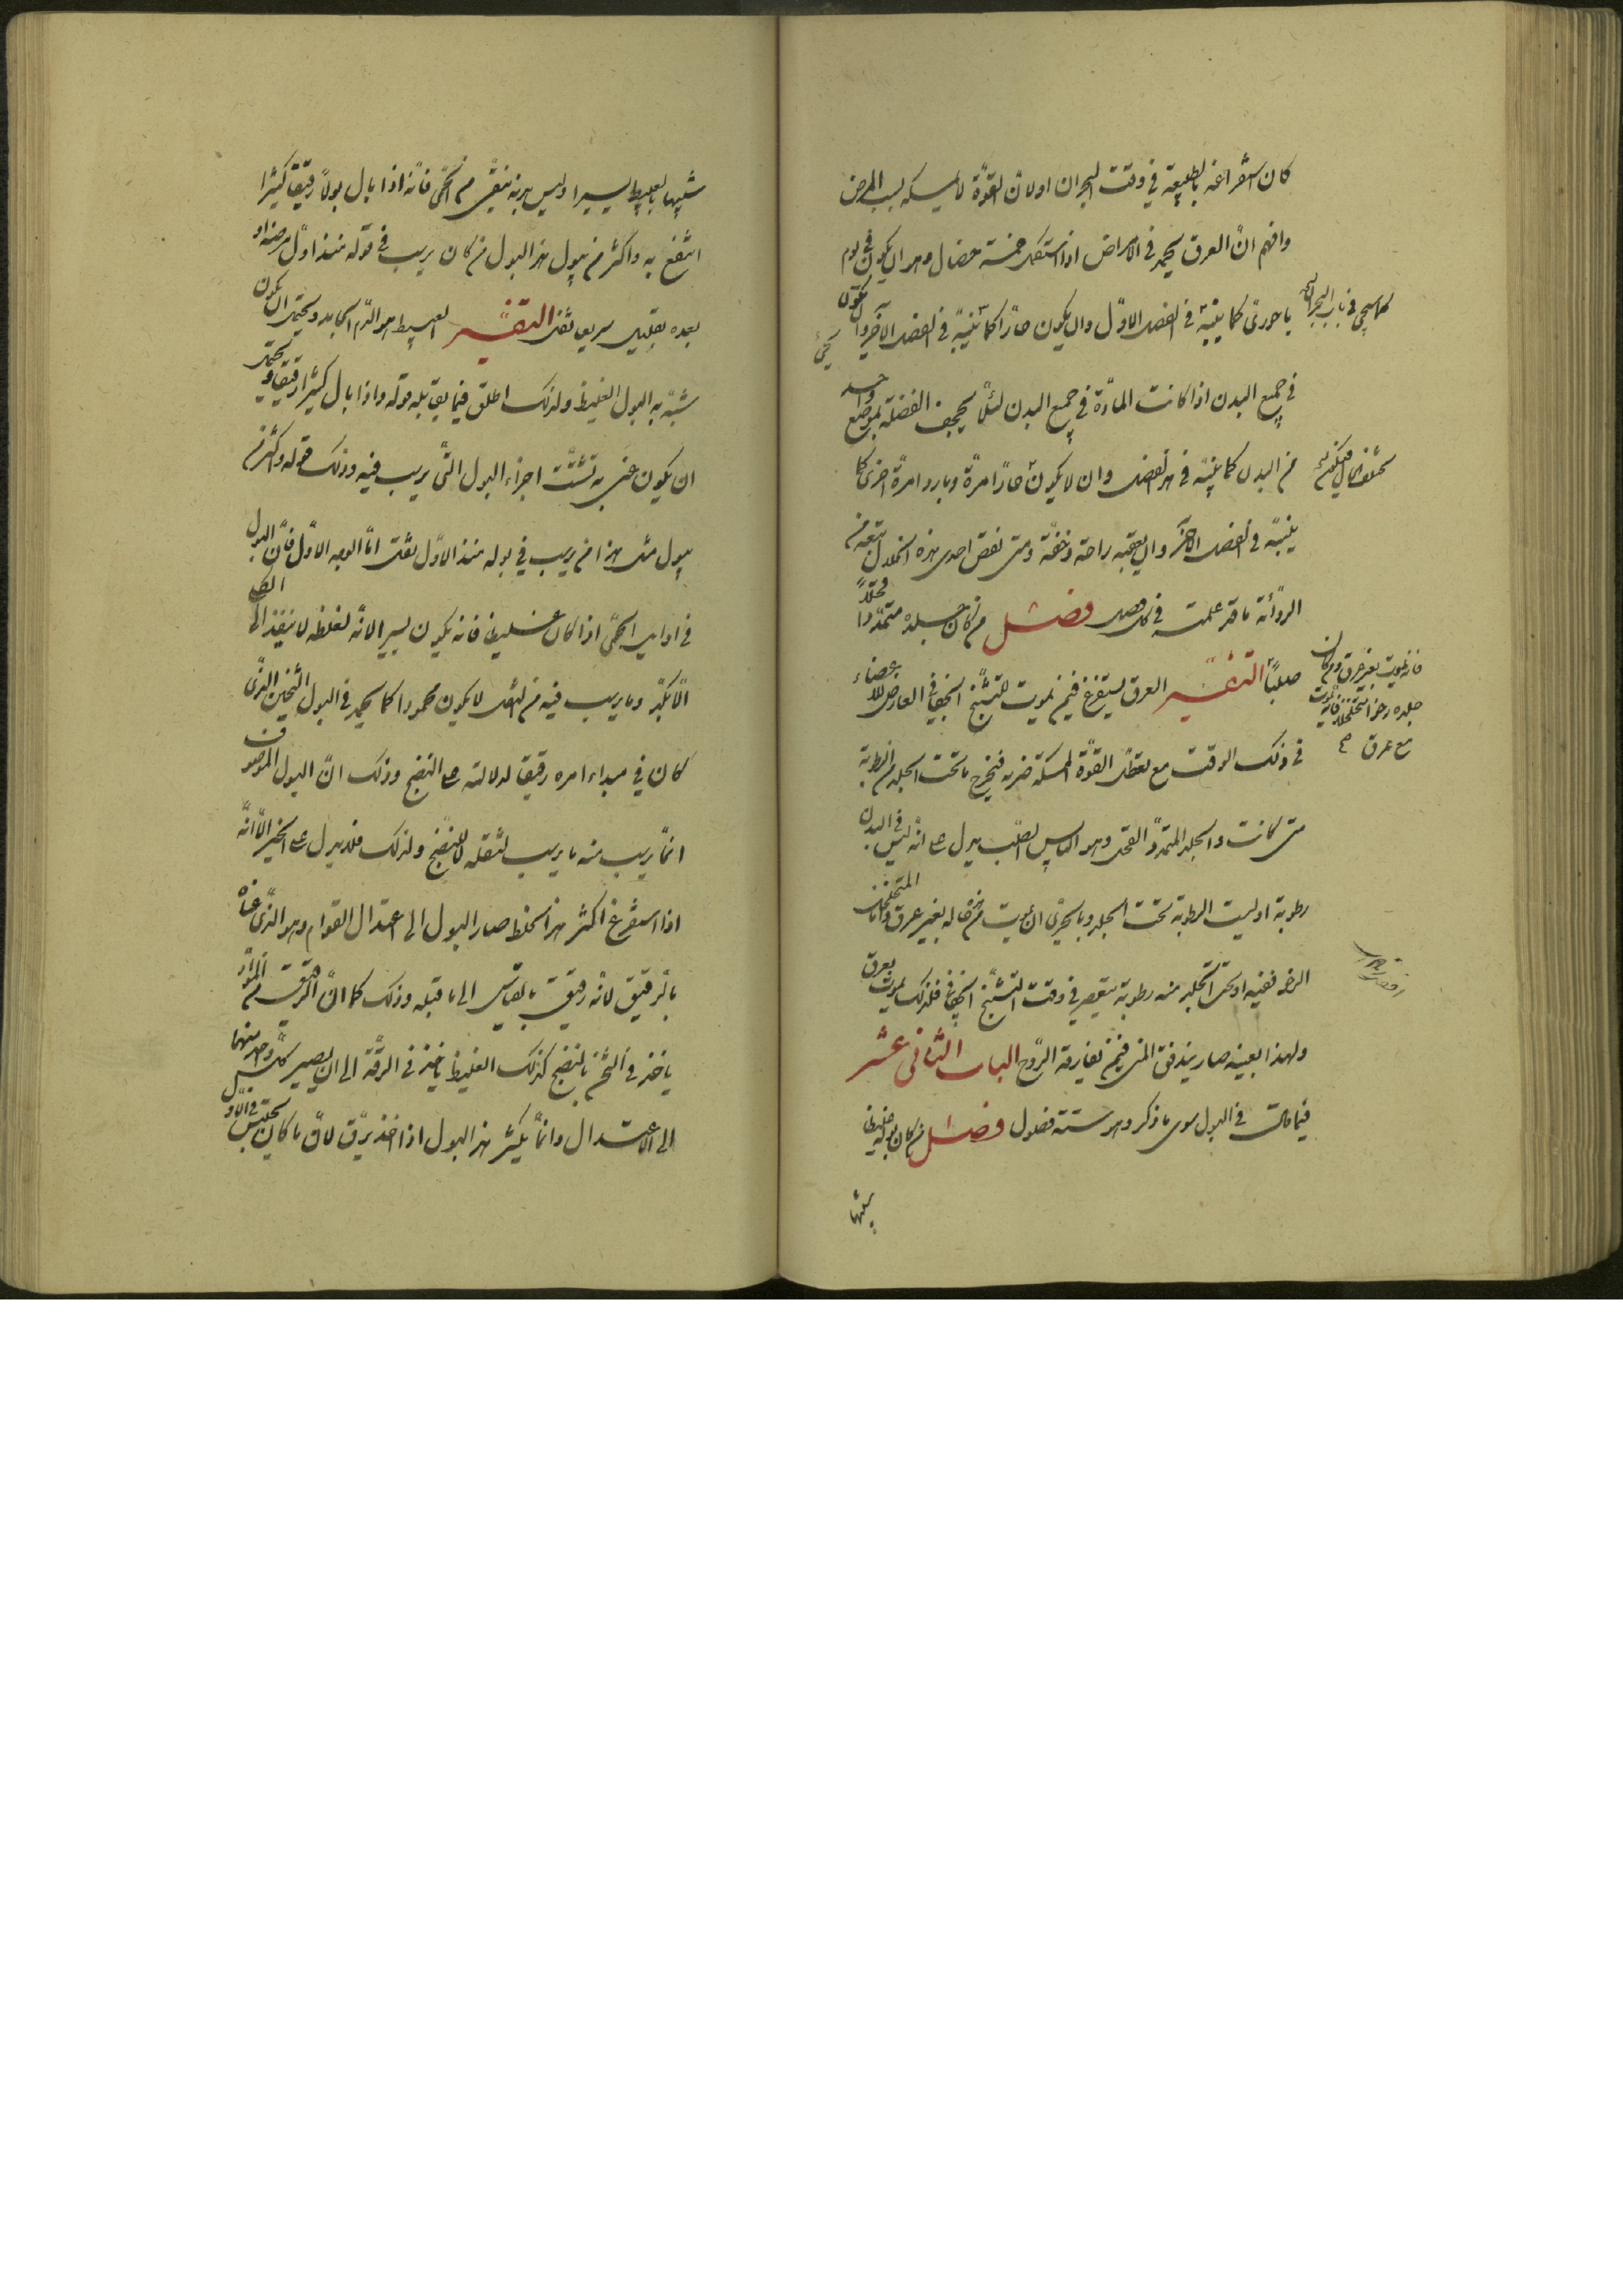 كان استفراغه بالطبيعة في وقت البحران اولان القوّة لا يمسكه بسبب المرض
وافهم انّ العرق يحمد في الامراض اذا استكمل خمسة خصال وهو ان يكون في يوم
باحوري كما بينّه في الفصل الاوّل وان يكون حارّا كما بينّه في الفصل الآخر وان يكون
في جميع البدن اذا كانت المادّة في جميع البدن لئلّا الفضلة بموضع واحد
من البدن كما بينّه في هذا الفصل وان لا يكون حارّا مرّة وباردا مرّة اخرى كما
بينّه في الفصل الآخر وان يعقبه راحة وخفّة ومتى نقص احدى هذه الخلال تبعه من
الردائة ما قد علمت في كل فصل فصل من كان جلده متمدّدا قحلا
صلبا التفسير العرق يستفرغ فيمن يموت للتشنّج العارض للاعضاء
في ذلك الوقت مع تعطّل القوّة الممسكة فيخرج ما تحت الجلد من الرطوبة
متى كانت والجلد المتمدّد القحل وهو اليابس الصلب يدل على انّه ليس في البدن
رطوبة اوليست الرطوبة تحت الجلد وبالحريّ ان يموت من هذه حاله بغير عرق وامّا المتخلخل
الرخو ففيه اوتحت الجلد منه رطوبة يعصر في وقت التشنّج فلذلك يموت بعرق
ولهذا بعينه صار يندفق المني فيمن يفارقه الرّوح الباب الثاني عشر
فيما قاله في البول سوى ما ذكر وهو ستة فصول فصل من كان بوله غليظا
كما سيجيء في باب البحران
فانه يموت بغير عرق ومن كان
جلده رخوا متخلخلا فانه يموت
مع عرق
شبيها
شبيها بالعبيط يسيرا وليس بدنه بنقي من الحمّى فانّه اذا بال بولا رقيقا كثيرا
انتفع به واكثر من يبول هذا البول من كان يرسب في بوله منذ اوّل مرضه او
بعده بقليل سريعا ثفل التفسير العبيط هو الدّم الجامد ويحتمل ان يكون
شبّه به البول الغليظ ولذلك اطلق فيما يقابله قوله واذا بال كثيرا رقيقا ويحتمل
ان يكون عنى به تشتّت اجزاء البول التي يرسب فيه وذلك قوله واكثر من
يبول مثل هذا من يرسب في بوله منذ الاوّل ثفل امّا الوجه الاوّل فانّ البول
في اوايل الحمّى اذا كان غليظا فانه يكون يسيرا لانّه لغلظه لا ينفذ الى الكلى
الّا بكدّ وما يرسب فيه من الثفل لا يكون محمودا كما يحمد في البول الثخين الذي
كان في مبداء امره رقيقا لدلالته على النضج وذلك انّ البول الموصوف
انّما يرسب منه ما يرسب لثقله لا للنضج ولذلك فلا يدل على الخير الّا انّه
اذا استفرغ اكثر هذا الخلط صار البول الى اعتدال القوام وهو الذي عناه
بالرقيق لانّه رقيق بالقياس الى ما قبله وذلك كما انّ الرقيق من الموادّ
ياخذ في الثخن بالنضج كذلك الغليظ ياخذ في الرقّة الى ان يصير كلّ واحد منهما
الى الاعتدال وانّما يكثر هذا البول اذا اخذ يرقّ لانّ ما كان يحتبس في الاوّل